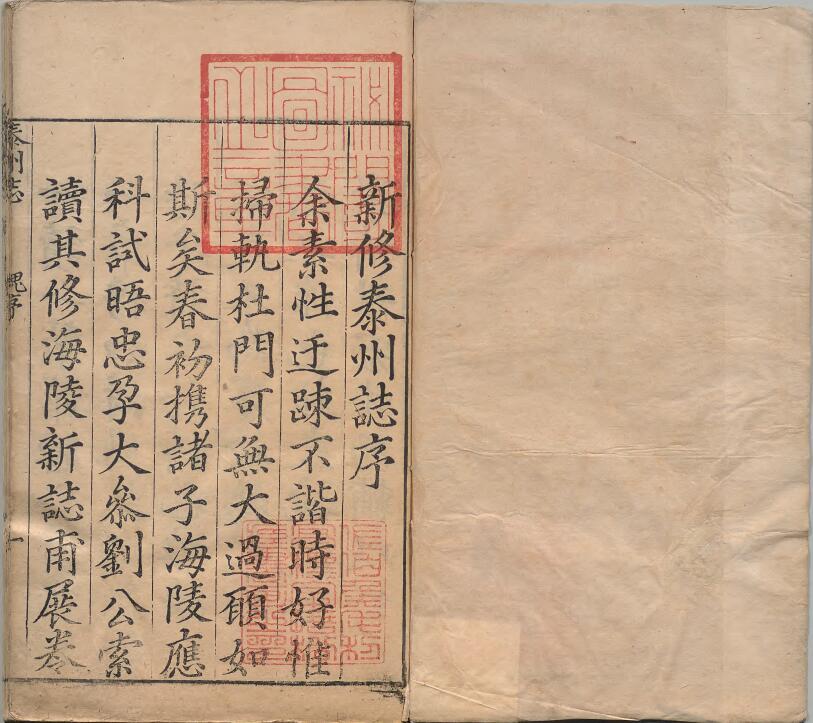 新修泰州誌序
余素性迂踈不諧時好惟
掃軌杜門可無大過頋如
斯矣春初携諸子海陵應
科試晤忠孕大叅劉公索
讀其修海陵新誌甫展卷
泰州誌
序
一